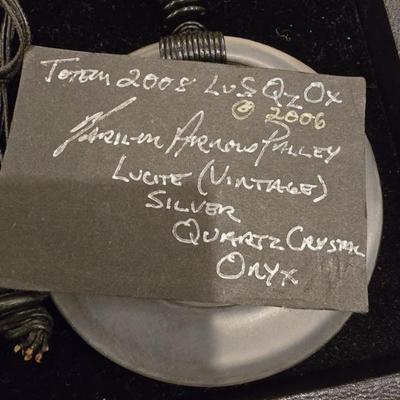 Totem 2008 LuSQzOx
© 2006
Marilyn Arnold Palley
Lucite (Vintage)
Silver
Quartz Crystal
Onyx